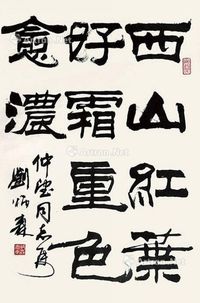 西山紅葉
好霜重色
愈濃
仲堃同志屬
劉炳森